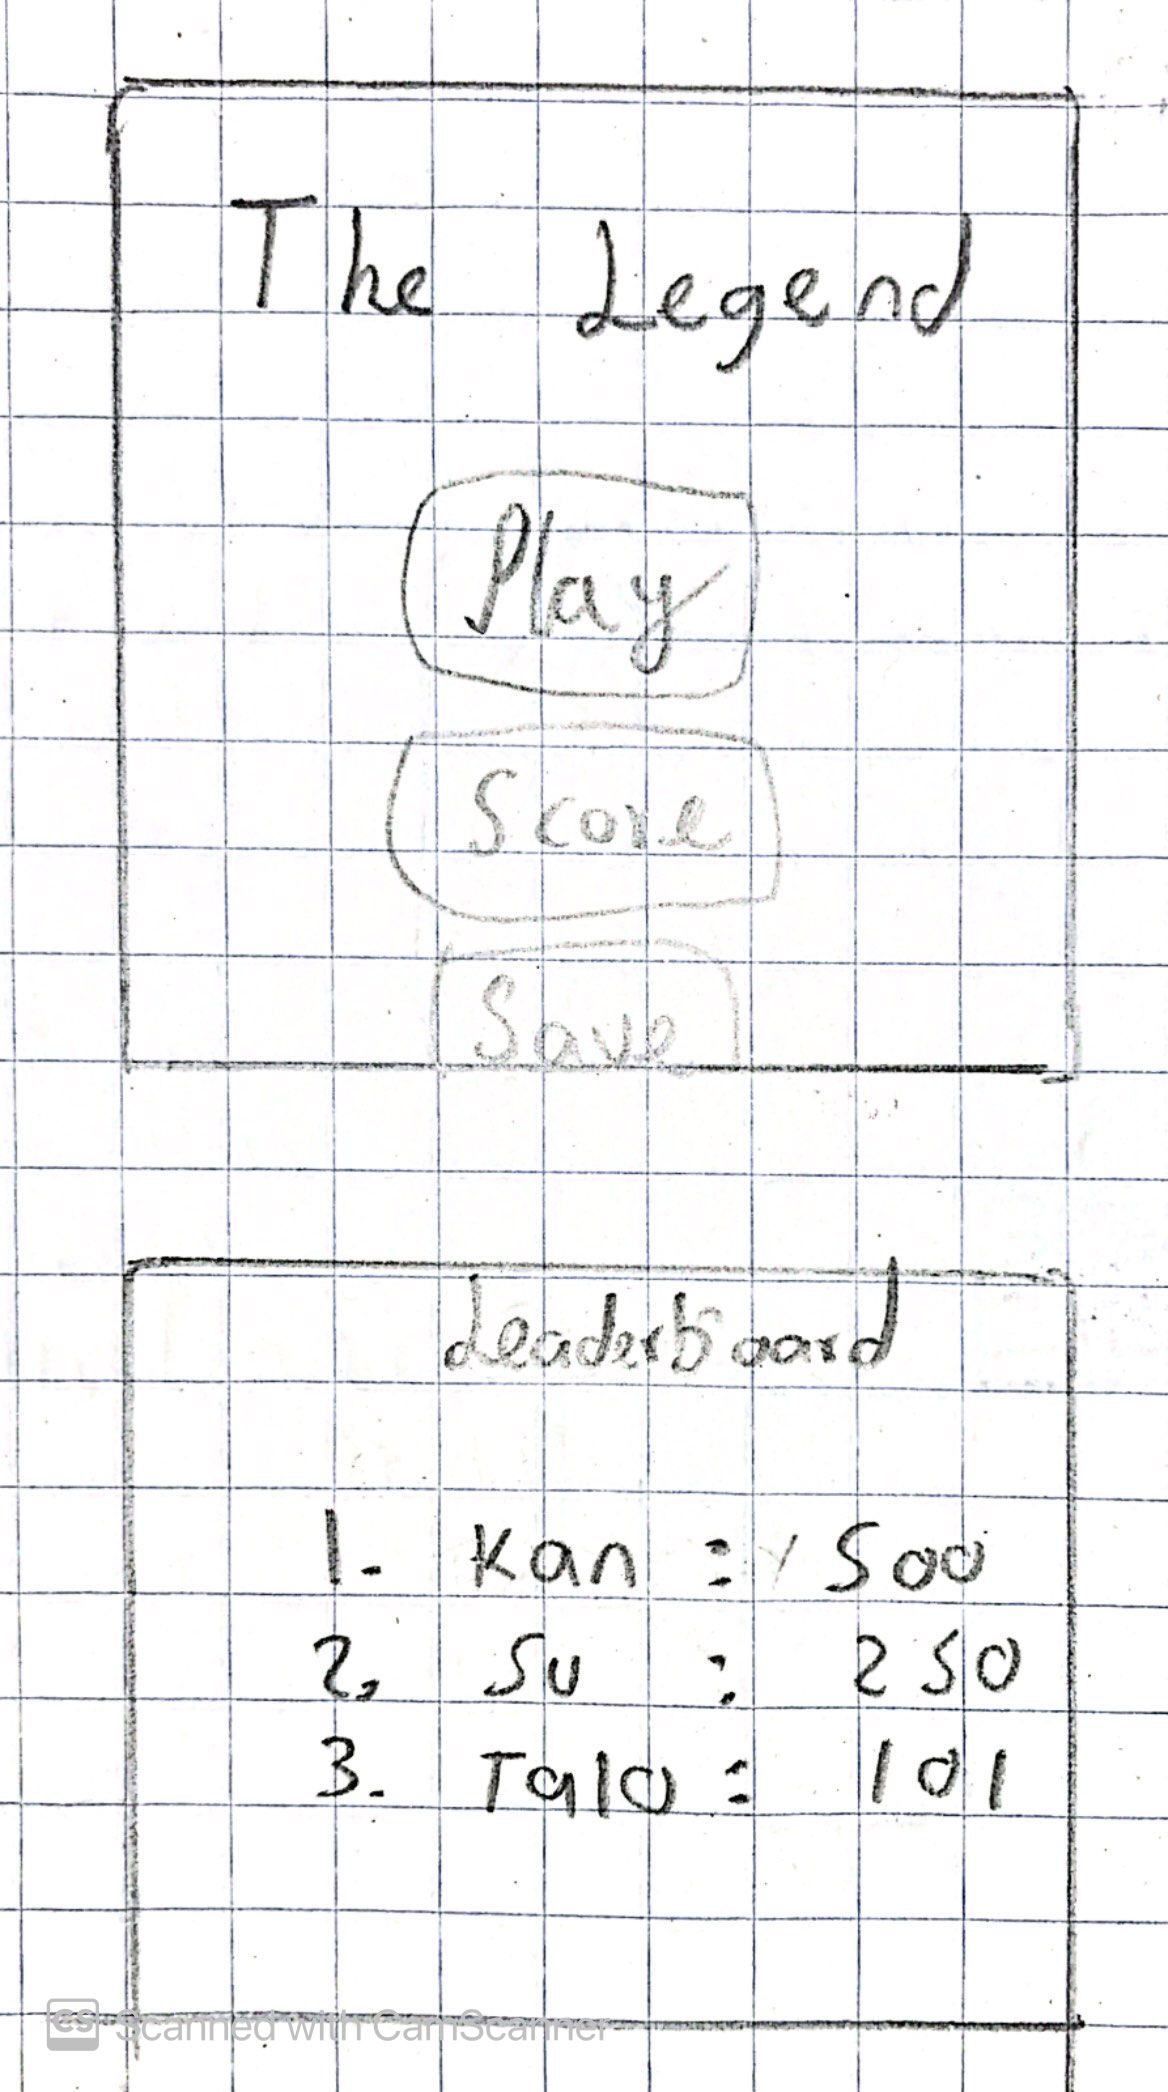 The Legend
Play
Score
Save
Leaderboard
1. Kan : 500
2. Su : 250
3. Talo : 101
CS Scanned with CamScanner